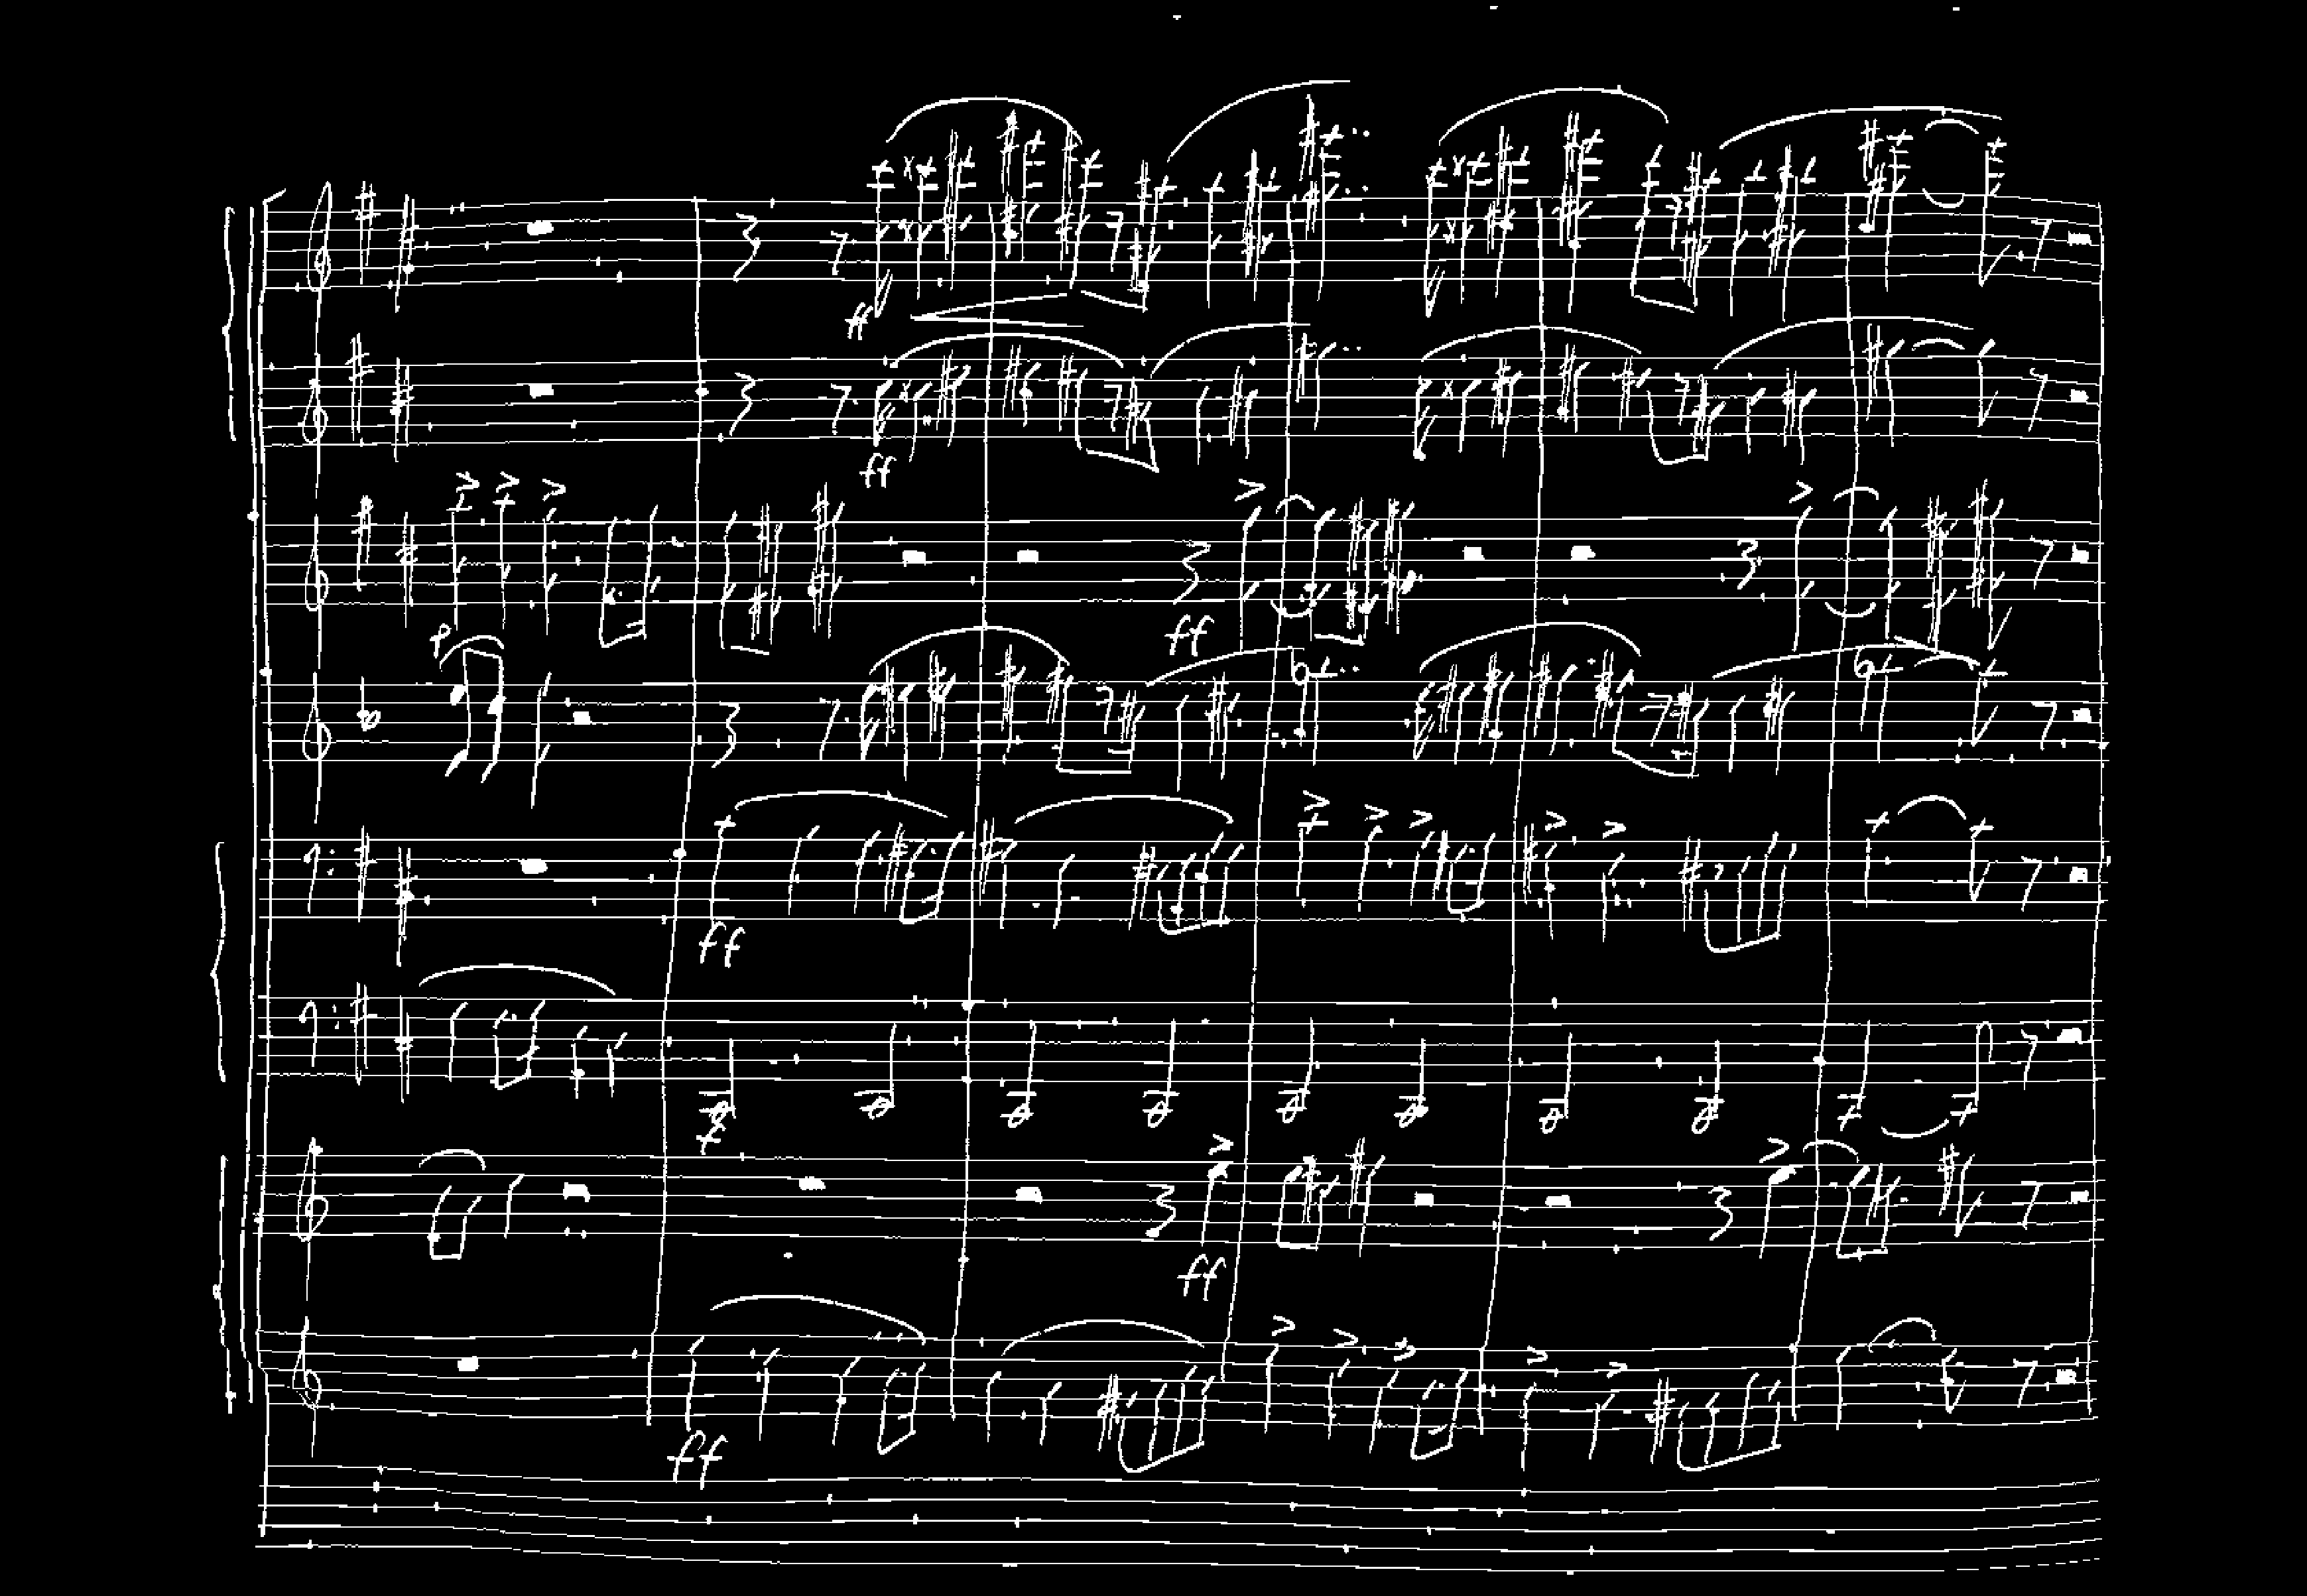 ff
ff
ff
p
ff
f
ff
ff